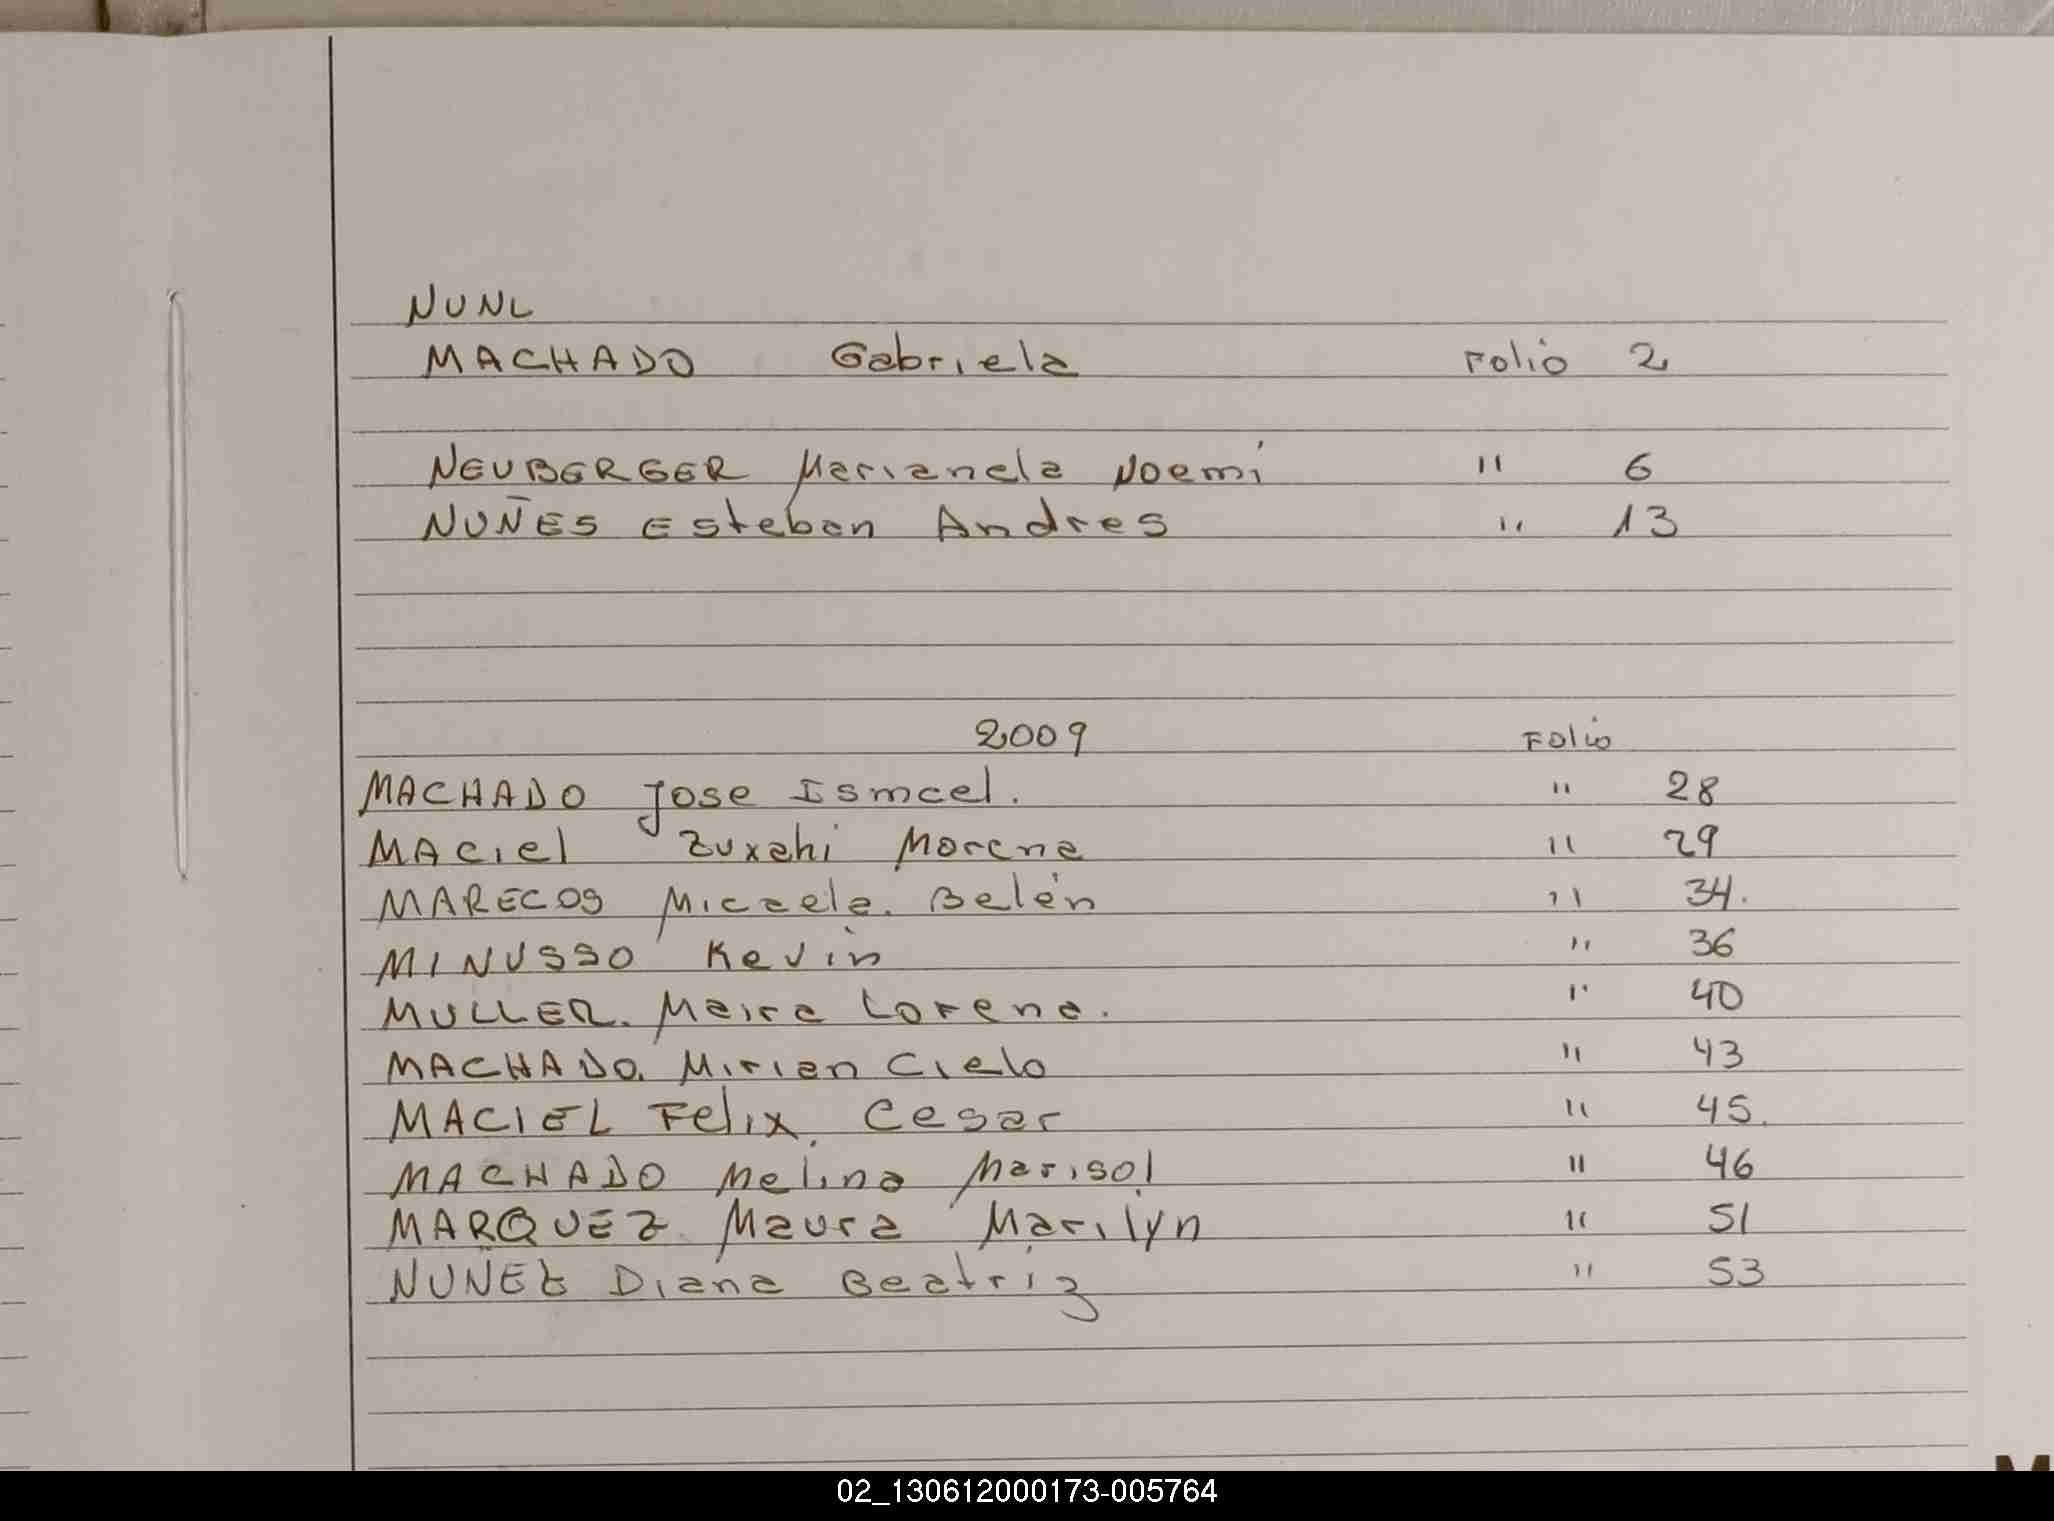 NUNL
MACHADO Gabriela Folio 2
NEUBERGER Marianela Noemí " 6
NUÑES Esteban Andres " 13
2009 Folio
MACHADO Jose Ismael. " 28
MACIel Zuxahi Morena " 29
MARECOS Micaela. Belén " 34.
MINUSSO Kevin " 36
MULLER. Maira Lorena. " 40
MACHADO. Mirian Cielo " 43
MACIEL Felix. Cesar " 45.
MACHADO Melina Marisol " 46
MARQUEZ Maura Marilyn " 51
NUNEZ Diana Beatriz " 53
M
02_130612000173-005764